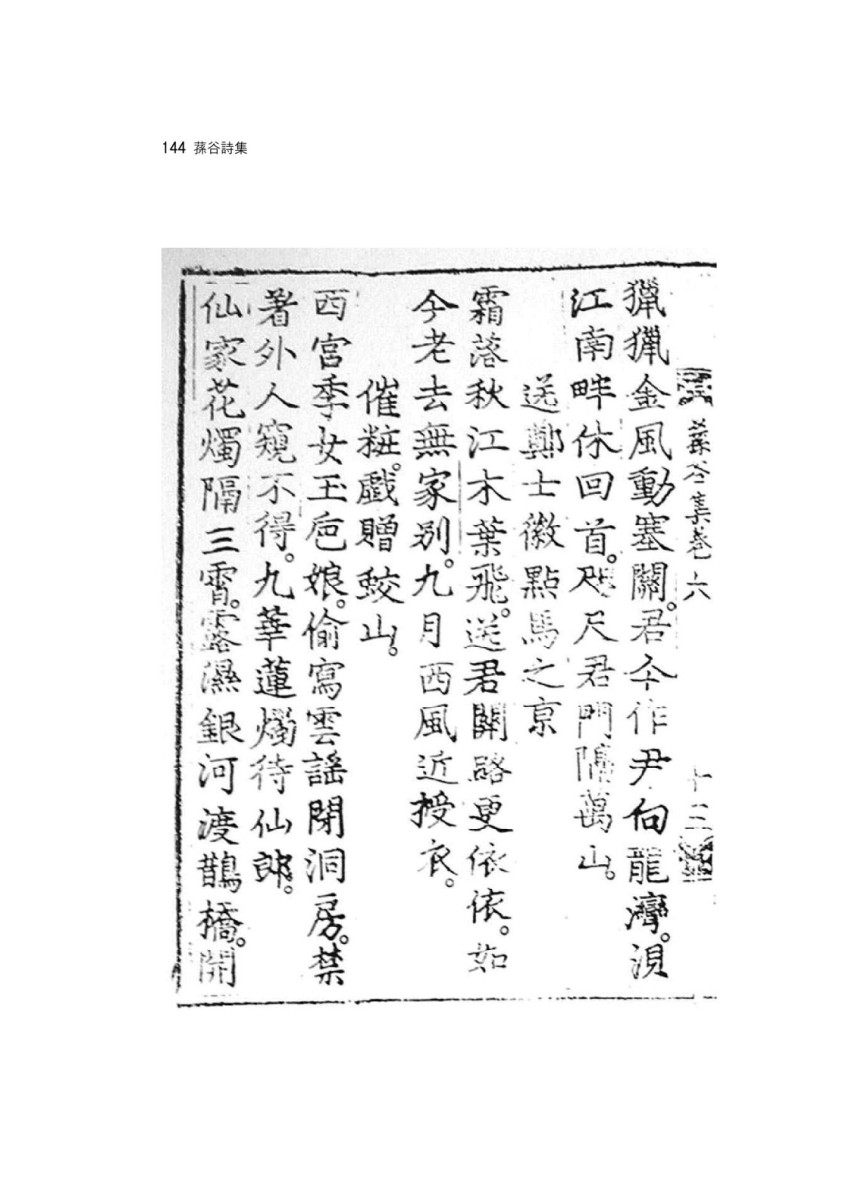 144 蓀谷詩集
蓀谷集卷六
十三
獵獵金風動塞關。君今作尹向龍灣。浿
江南畔休回首。咫尺君門隔萬山。
送鄭士徽點馬之京
霜落秋江木葉飛。送君關路更依依。如
今老去無家別。九月西風近授衣。
催粧。戲贈蛟山。
西宮季女玉巵娘。偷寫雲謠閉洞房。禁
著外人窺不得。九華蓮燭待仙郞。
仙家花燭隔三霄。露濕銀河渡鵲橋。開